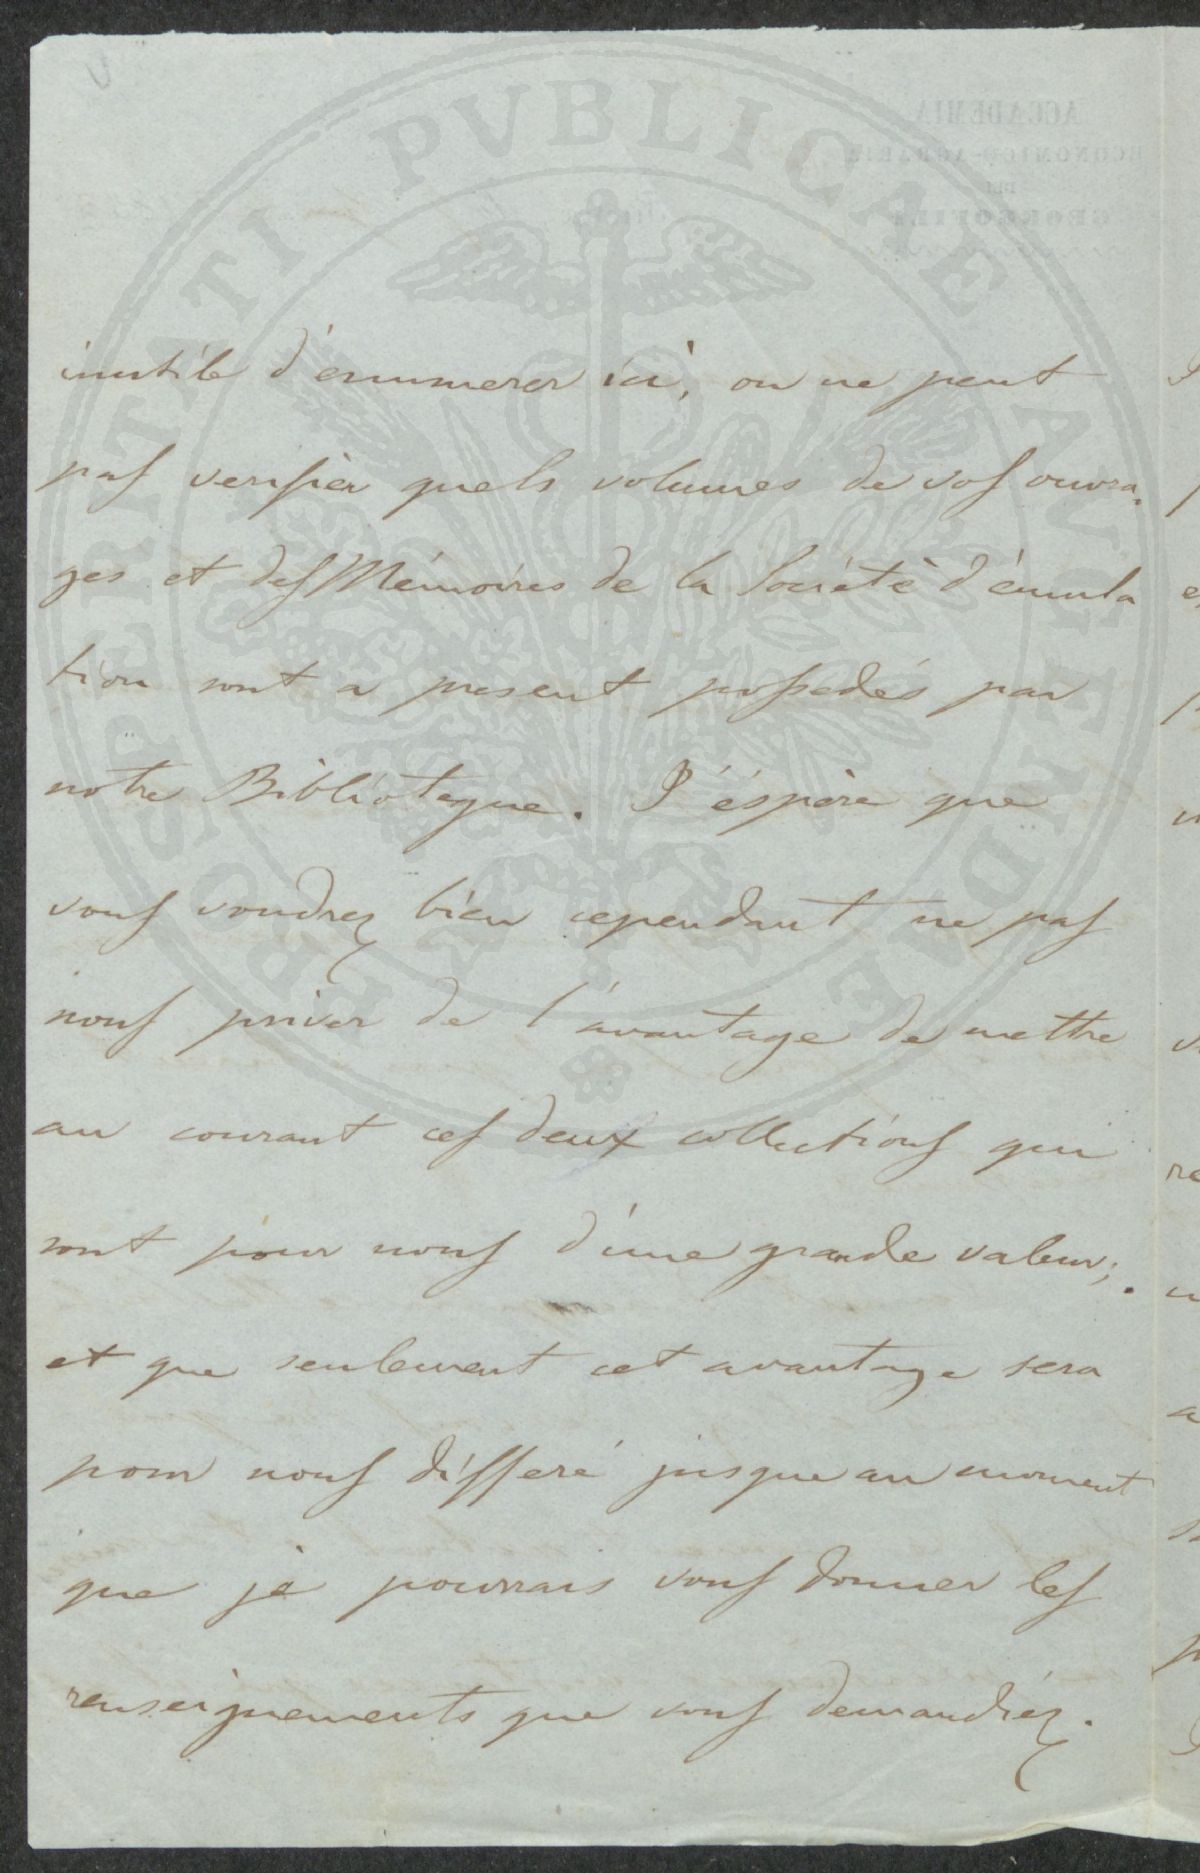 PROSPERITATI PVBLICAE AVGENDAE
inutile d'énumerer ici, on ne peut
pas verifièr quels volumes de vos ouvra,
ges et des Mémoires de la Société d'émula
tion sont a present possedés par
notre Biblioteque. J'éspère que
vous voudrez bien cependant ne pas
nous priver de l'avantage de mettre
au courant ces deux collections qui
sont pour nous d'une grande valeur;
et que seulement cet avantage sera
pour nous differé jusque au moment
que je pourrais vous donner les
renseignements que vous demandiéz.